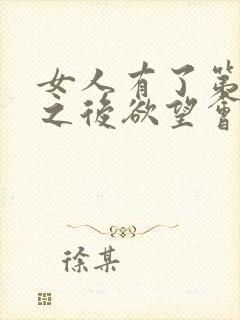 女人有了第
之後欲望會
徐某